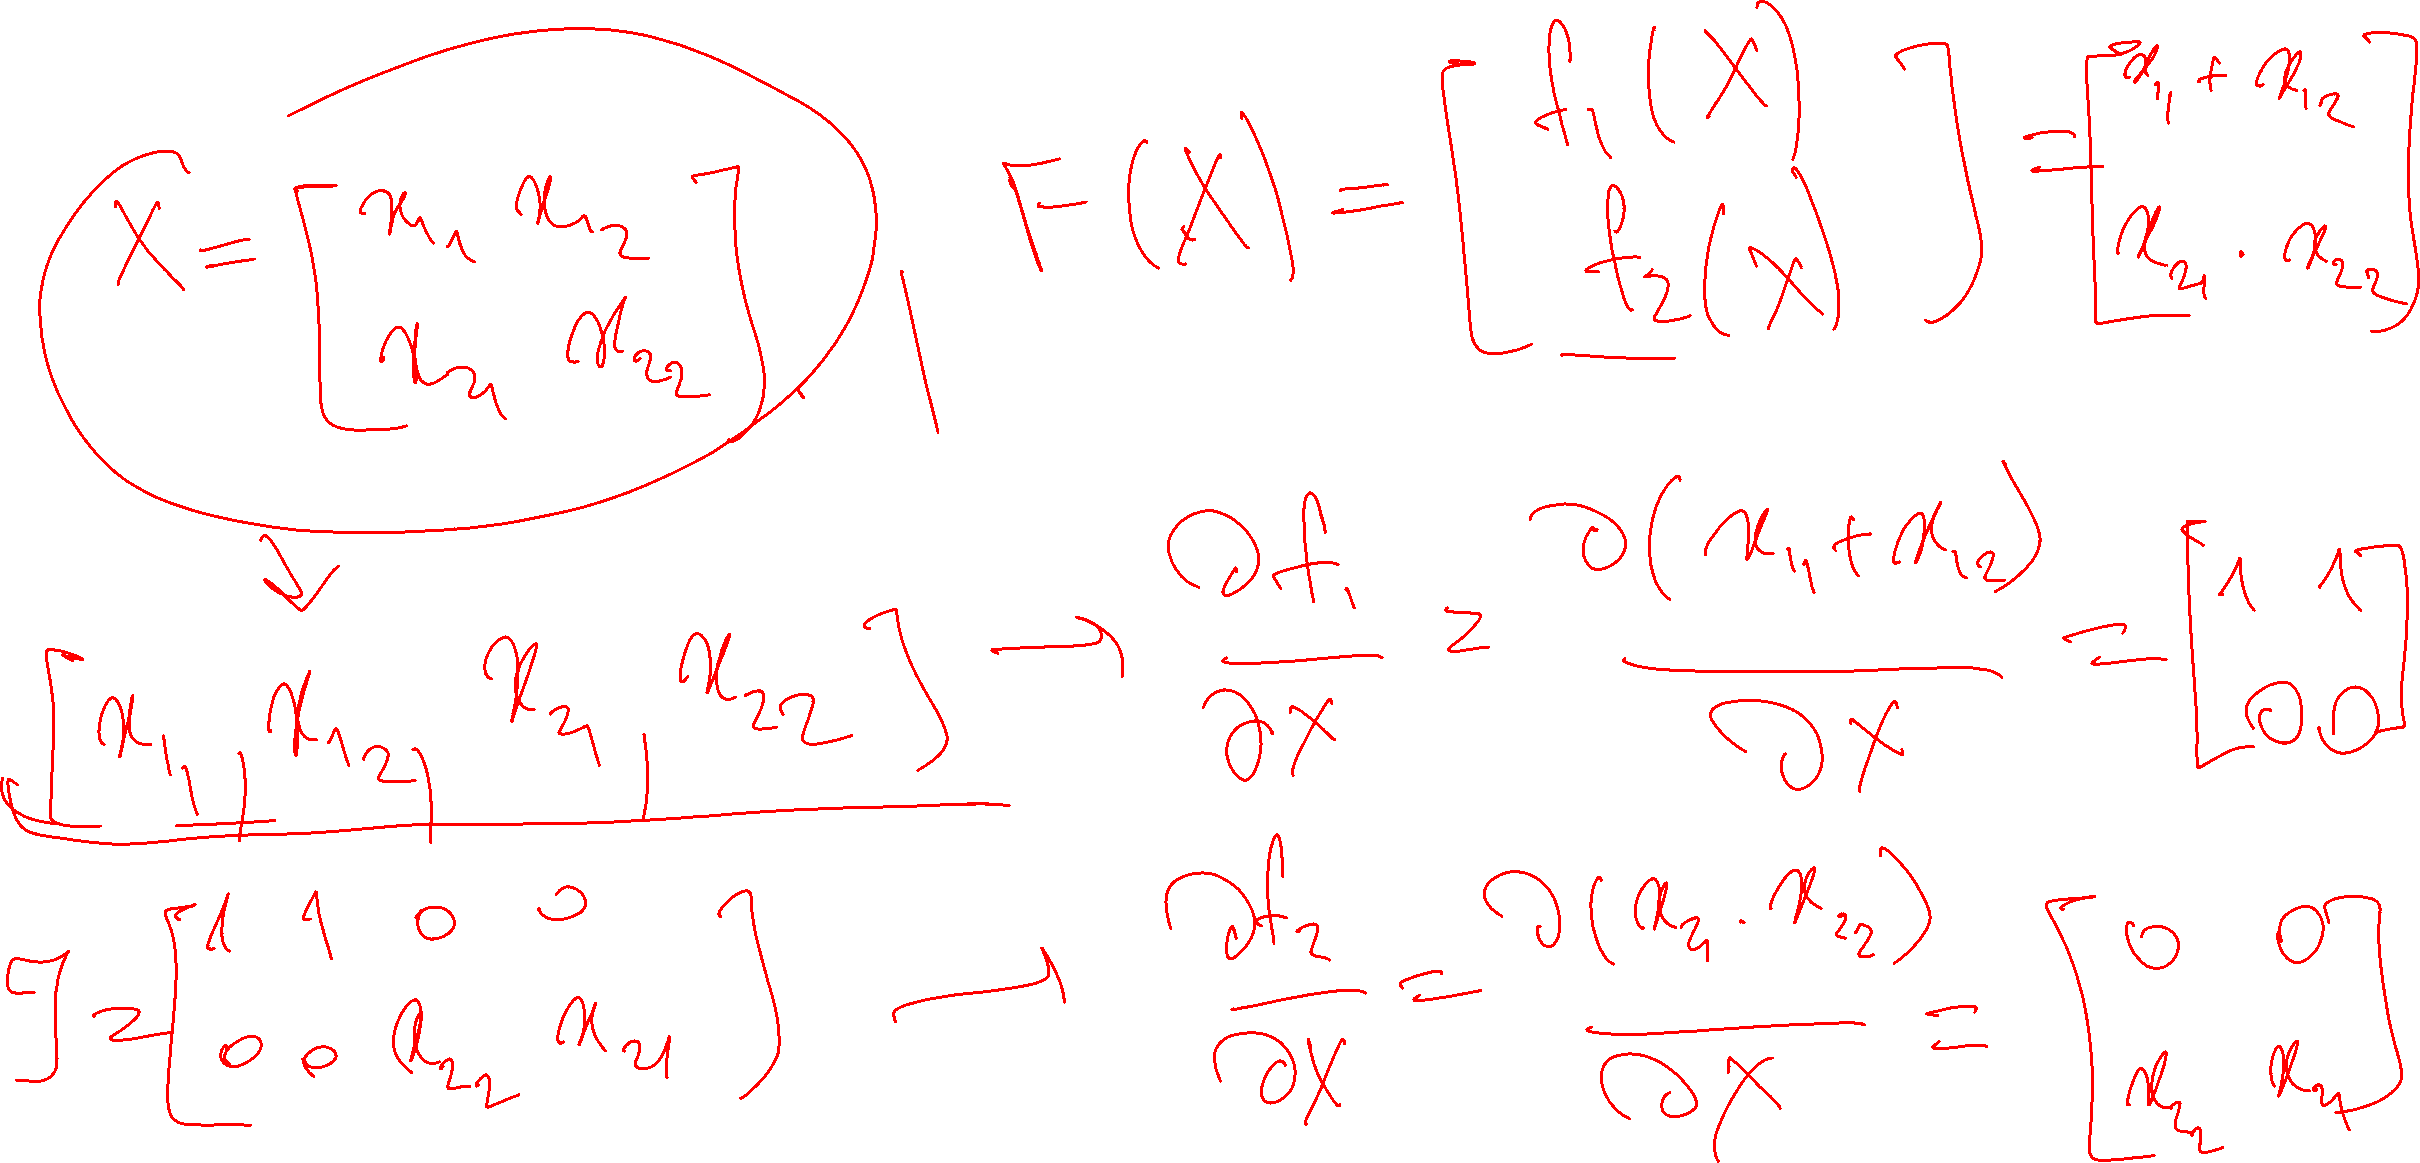 X = [ x₁₁ x₁₂ ; x₂₁ x₂₂ ] | F(X) = [ f₁(X) ; f₂(X) ] = [ x₁₁ + x₁₂ ; x₂₁ · x₂₂ ]
[ x₁₁, x₁₂, x₂₁, x₂₂ ] → ∂f₁/∂X = ∂(x₁₁ + x₁₂)/∂X = [ 1 1 ; 0 0 ]
J = [ 1 1 0 0 ; 0 0 x₂₂ x₂₁ ] → ∂f₂/∂X = ∂(x₂₁ · x₂₂)/∂X = [ 0 0 ; x₂₂ x₂₁ ]